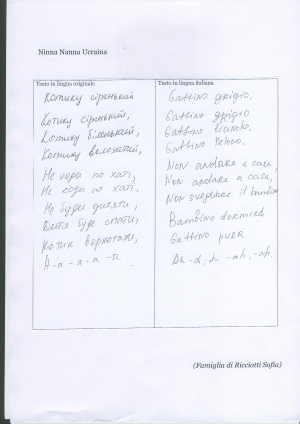 Ninna Nanna Ucraina
Testo in lingua originale
Котику сіренький
Котику сіренький,
Котику біленький,
Котику волохатий,
Не ходи по хаті,
Не ходи по хаті,
Не буди дитяти,
Дитя буде спати,
Котик воркотати,
А-а-а-а-а.
Testo in lingua italiana
Gattino grigio,
Gattino grigio
Gattino bianco,
Gattino
Non andare a casa
Non andare a casa,
Non svegliare il bambino
Bambino dormirà
Gattino
Ah-ah-ah.
(Famiglia di Ricciotti Sofia)